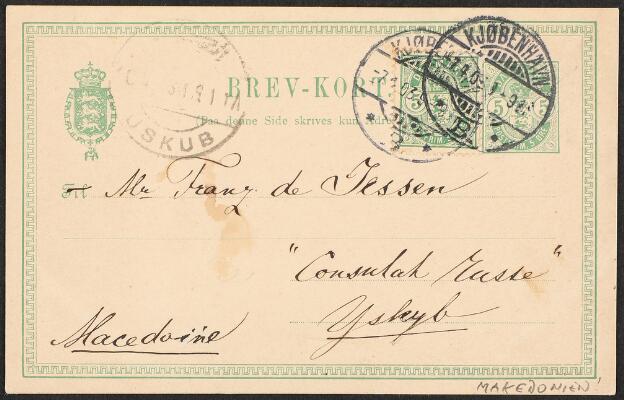 BREV-KORT
(Paa denne Side skrives kun Adressen)
KJØBENHAVN
KJØB
B
5
5
USKUB
Til Mr Franz de Jessen
"Consulat Russe"
Yskyb
Macedoine
MAKEDONIEN!